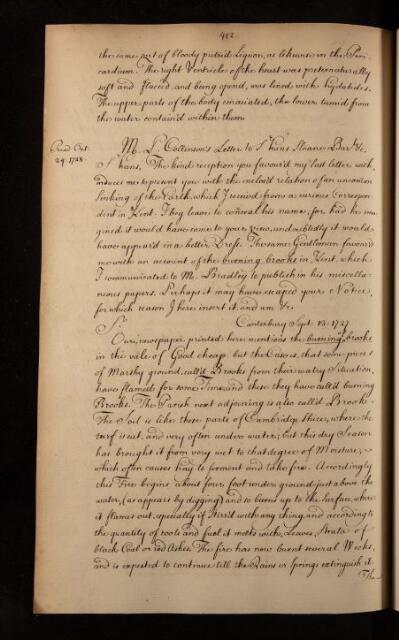 412
the same sort of bloody putrid Liquor, as likewise in the Peri-
cardium. The right Ventricle of the heart was preternaturally
soft and flaccid, and being opend, was lined with Hydatides.
The upper parts of the body emaciated, the lower tumid from
the water contain'd within them
Read Oct.
24. 1728.
Mr. P. Collinson's Letter to Sr. Hans Sloane Bar. &c.
Sr. Hans, The kind reception you favour'd my last letter with,
induces me to present you with the inclos'd relation of an uncommon
sinking of the Earth, which I receiv'd from a curious Correspon-
dent in Kent. I beg leave to conceal his name, for had he ima-
gined it would have come to your view, undoubtedly it would
have appear'd in a better Dress. The same Gentleman favour'd
me with an account of the burning brooks in Kent, which
I communicated to Mr. Bradley to publish in his miscella-
neous papers. Perhaps it may have escaped your Notice,
for which reason I here insert it, and am &c.
Canterbury Sept. 13. 1727
Sr.
Our newspaper printed here mentions the burning brooks
in the vale of God cheap, but the Case is, that some pieces
of Marshy ground, call'd Brooks from their watry Situation,
have flamed for some Time, and these they have call'd burning
Brooks. The Parish next adjoining is also call'd Brook
The Soil is like those parts of Cambridge Shire, where the
turf is cut, and very often under water; but this dry Season
has brought it from very wet to that degree of Moisture,
which often causes hay to ferment and take fire. Accordingly
this Fire begins about four foot under ground, just above the
water, (as appears by digging) and so burns up to the surface, where
it flames out, specially if stirr'd with any thing, and according to
the quantity of roots and fuel it meets with, Leaves, Strata of
black Coal or red Ashes. The fire has now burnt several Weeks,
and is expected to continue till the Rains or Springs extinguish it.
The